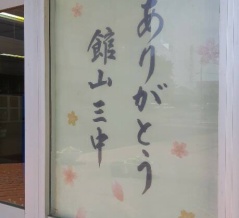 ありがとう
館山三中